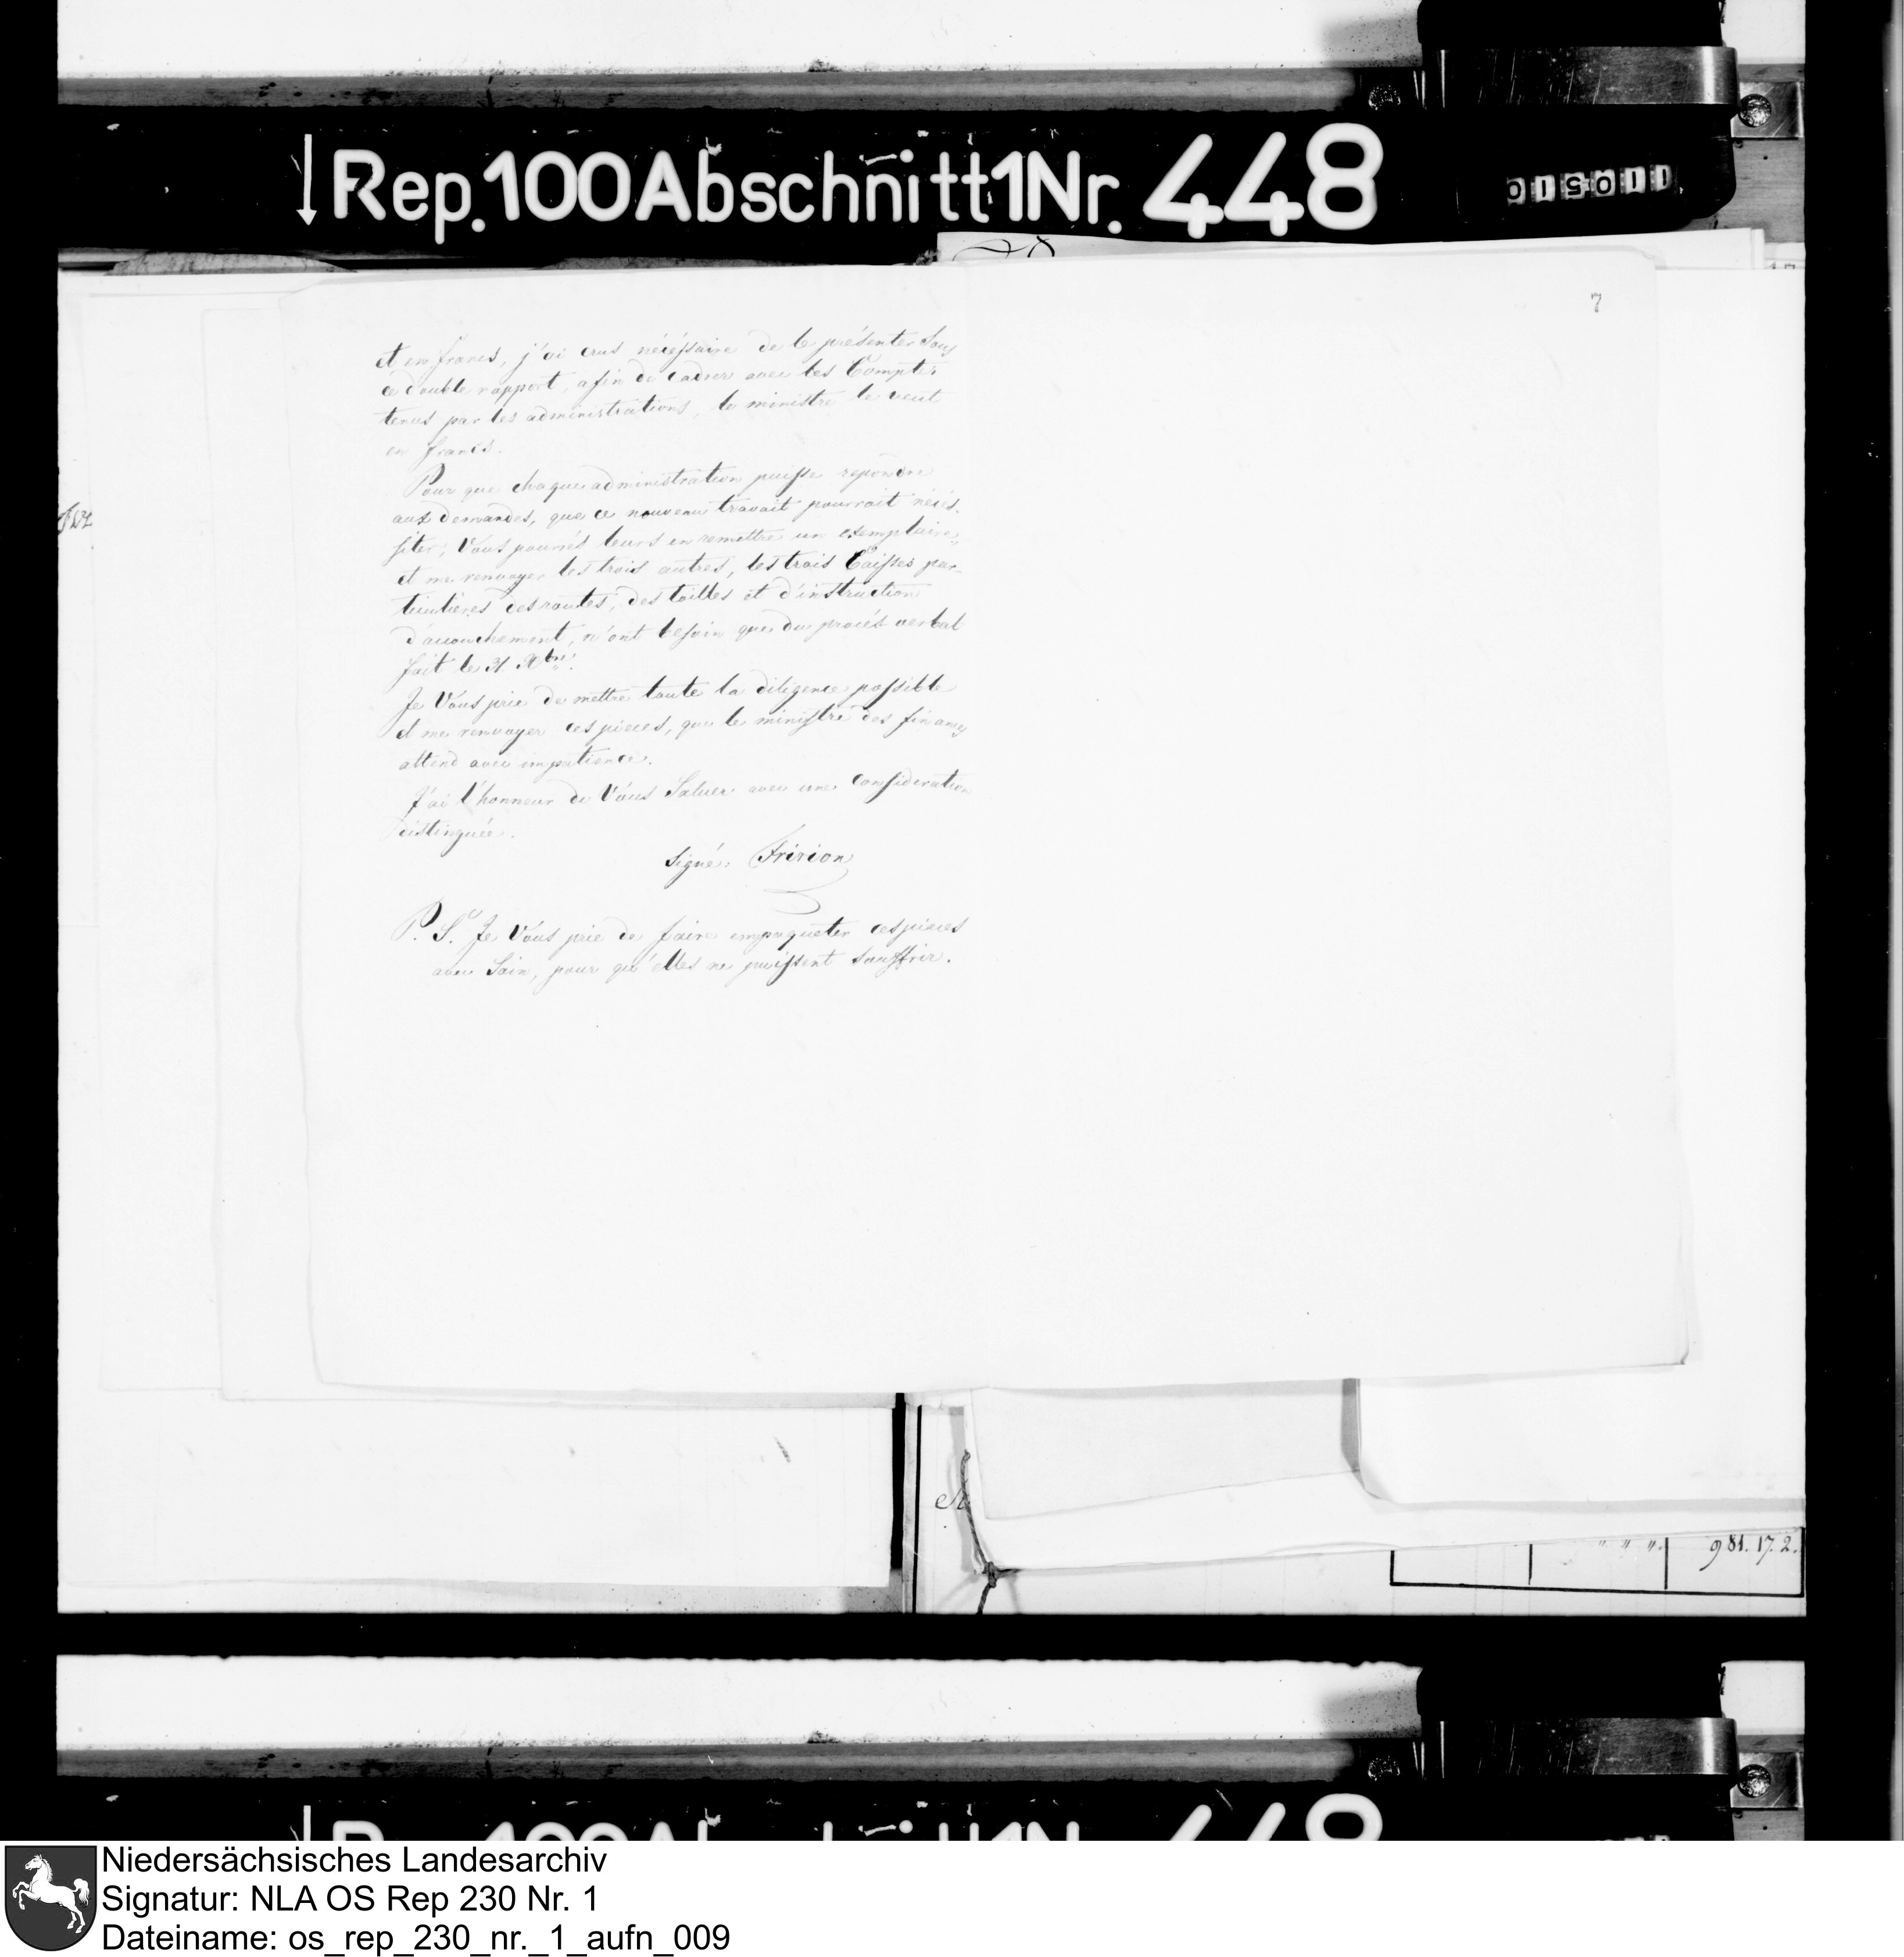 Rep.100Abschnitt1Nr.448
0150110
7
et en francs, j'ai crus nécéssaire de le présenter sous
ce double rapport, afin de cadrer avec les Comptes
tenus par les administrations, le ministre le veut
en francs.
Pour que chaque administration puisse repondre
aux demandes, que ce nouveau travail pourrait néces-
siter, Vous pourrés leurs en remettre un exemplaire,
et me renvoyer les trois autres, les trois Caisses par-
ticulières des routes, des tailles et d'instruction
d'accouchement, n'ont besoin que du procés verbal
fait le 31 Xbre.
Je Vous prie de mettre toute la diligence possible
et me renvoyer ces pieces, que le ministre des finances
attend avec impatience.
J'ai l'honneur de Vous Saluer avec une Consideration
distinguée.
Signé: Fririon
P. S. Je Vous prie de faire empaqueter ces pieces
avec Soin, pour qu'elles ne puissent souffrir.
" " " 981. 17. 2.
Niedersächsisches Landesarchiv
Signatur: NLA OS Rep 230 Nr. 1
Dateiname: os_rep_230_nr._1_aufn_009